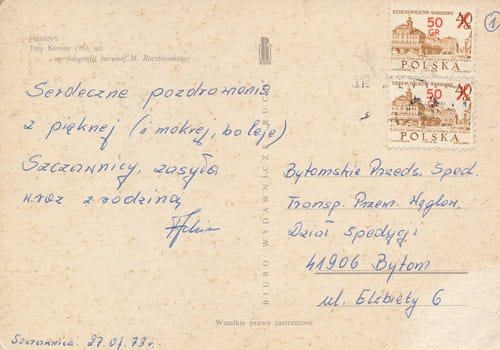 PIENINY
Trzy Korony (982 m)
wg fotografii barwnej M. Raczkowskiego
Serdeczne pozdrowienia
z pięknej (i mokrej, boleję)
Szczawnicy, zasyła
wraz z rodziną
Szczawnica, 27.07.73r.
BIURO WYDAWNICZE „RUCH”
Wszelkie prawa zastrzeżone
1
SIEDEM WIEKÓW WARSZAWY
50 GR
40 GR
POLSKA
50
40
POLSKA
Bytomskie Przeds. Sped.
Transp. Przem. Węglow.
Dział Spedycji
41906 Bytom
ul. Elżbiety 6